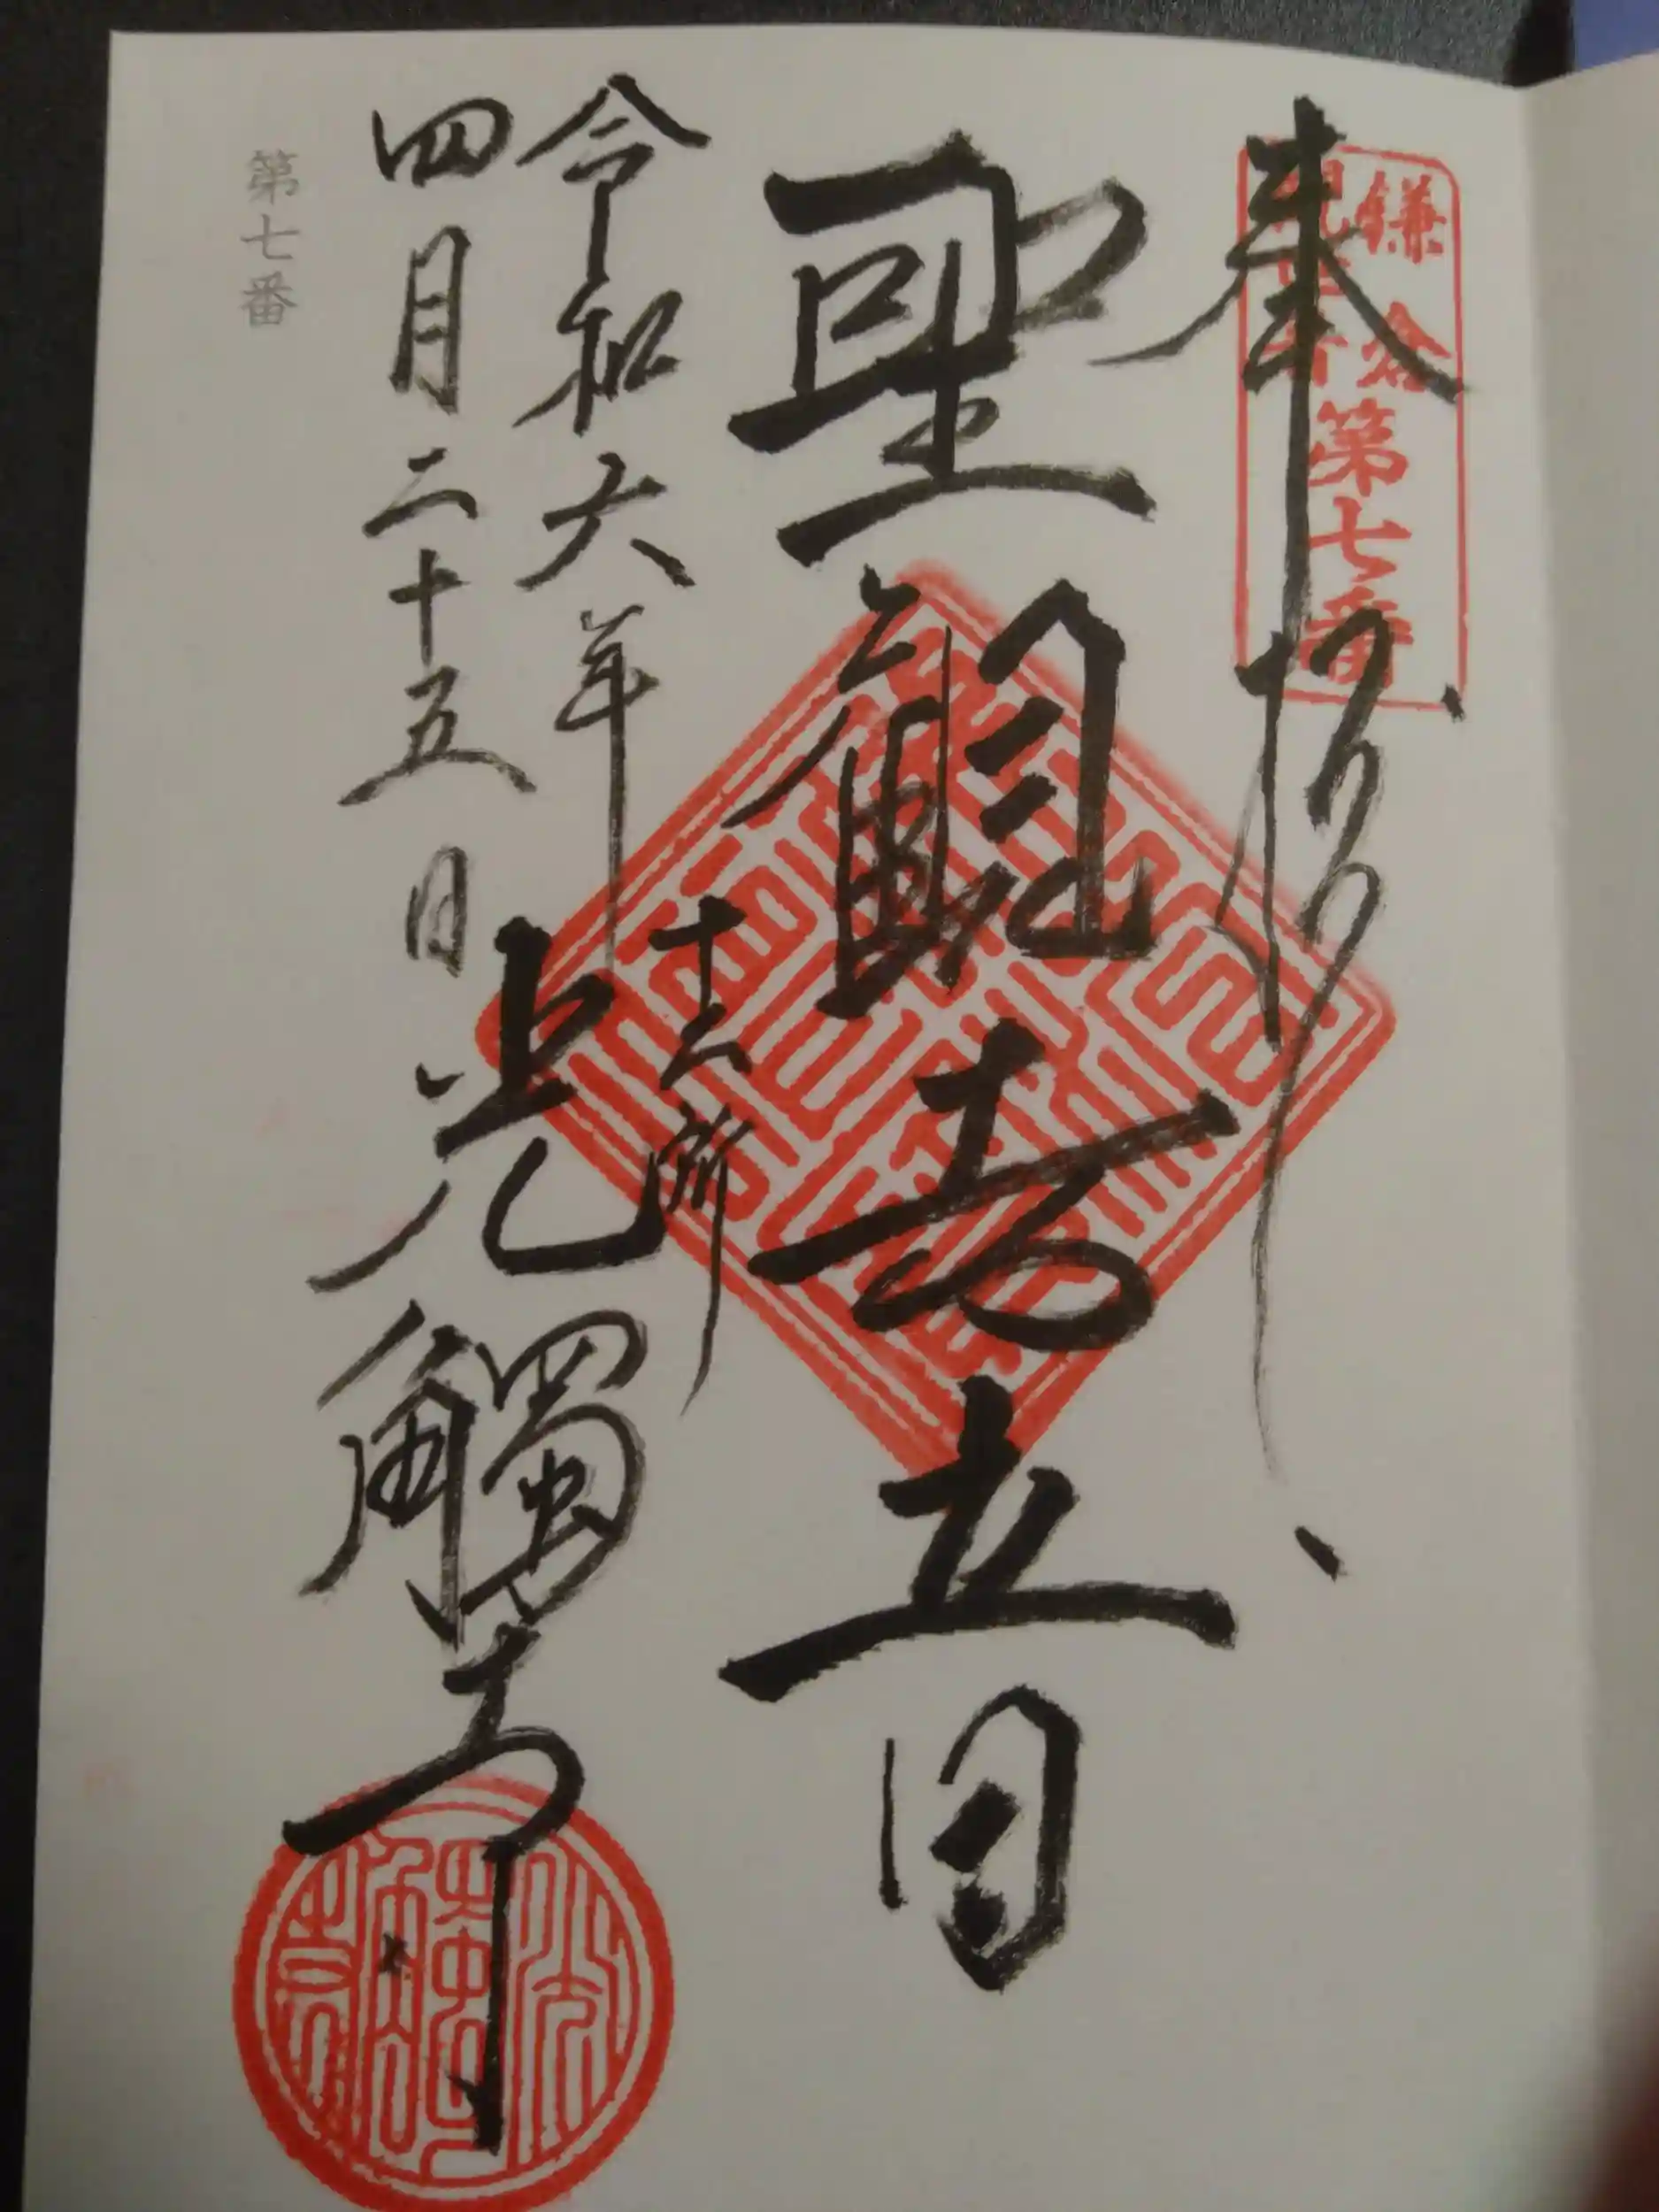 鎌倉
観世音
第七番
奉拝
聖觀世音
令和六年
四月二十五日
十二所
光觸寺
第七番